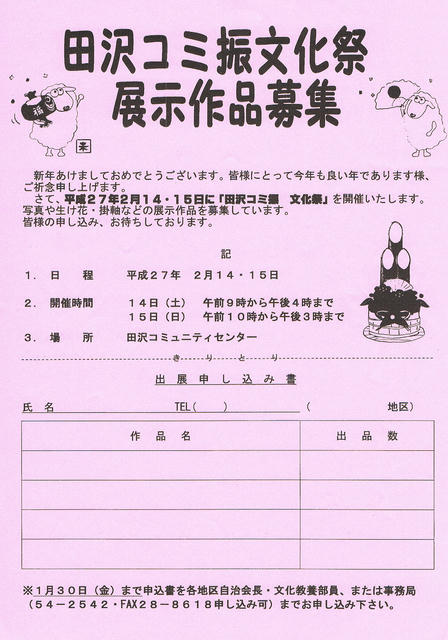 田沢コミ振文化祭
展示作品募集
福
未
新年あけましておめでとうございます。皆様にとって今年も良い年であります様、
ご祈念申し上げます。
さて、平成27年2月14・15日に「田沢コミ振　文化祭」を開催いたします。
写真や生け花・掛軸などの展示作品を募集しています。
皆様の申し込み、お待ちしております。
記
1．日　程　平成27年　2月14・15日
2．開催時間　14日（土）　午前9時から午後4時まで
15日（日）　午前10時から午後3時まで
3．場　所　田沢コミュニティセンター
きりとり
出展申し込み書
氏名　TEL（　）　（　地区）
作品名　出品数
※1月30日（金）まで申込書を各地区自治会長・文化教養部員、または事務局
（54－2542・FAX28－8618申し込み可）までお申し込み下さい。